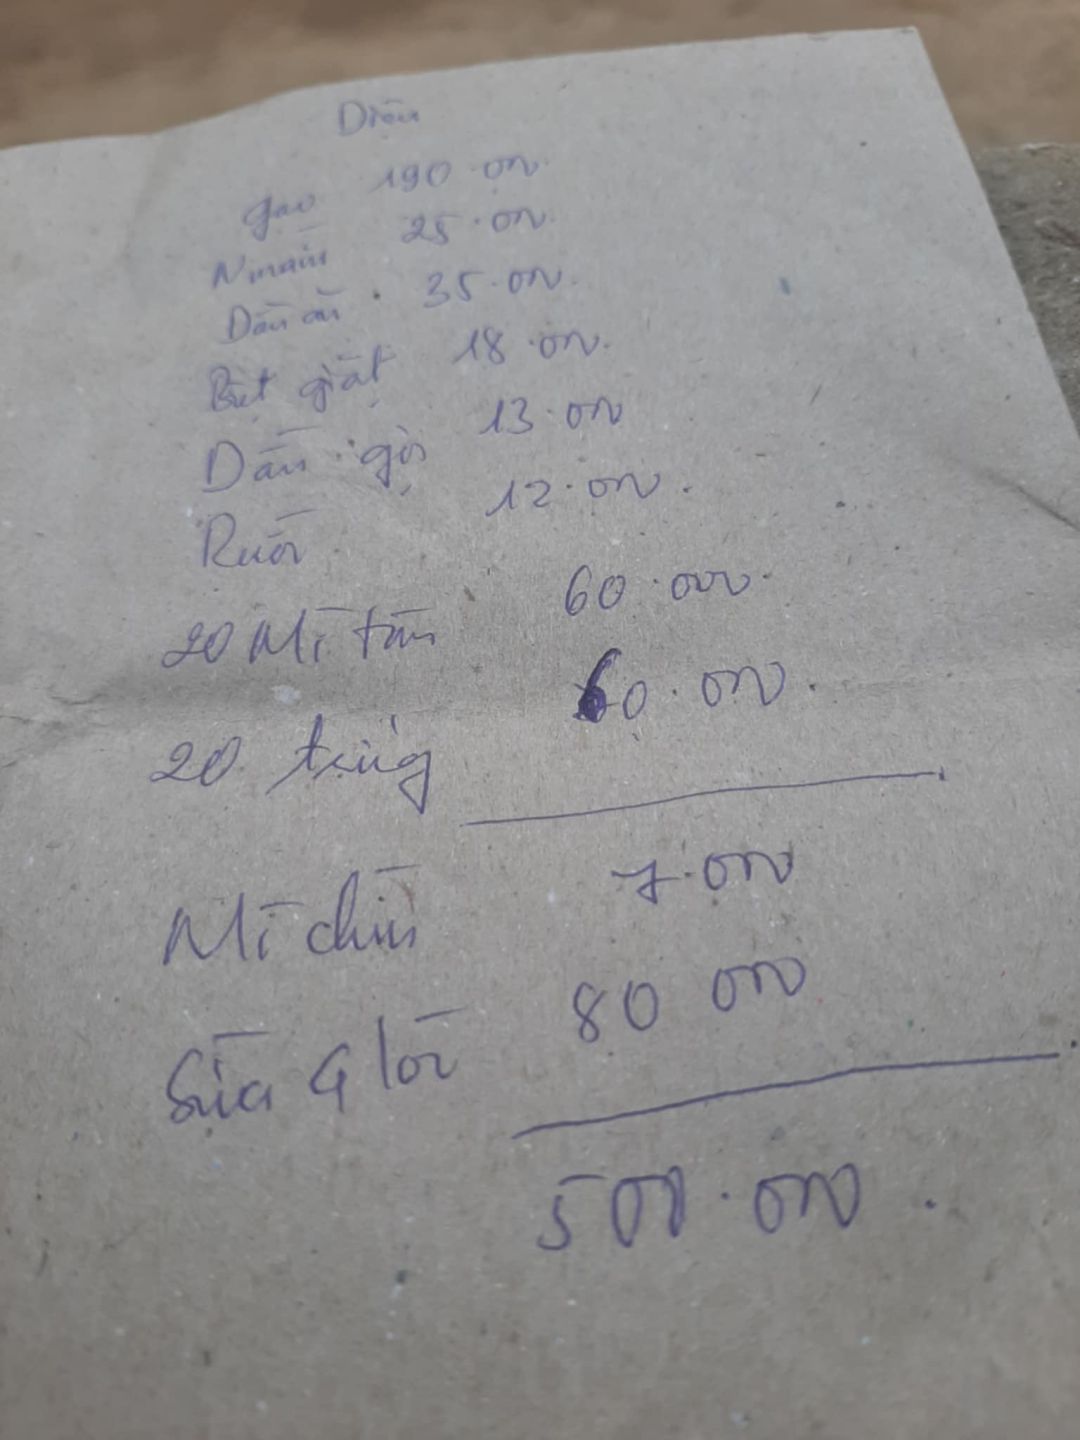 Diệu
gạo 190.000
N mắm 25.000
Dầu ăn 35.000
Bột giặt 18.000
Dầu gội 13.000
Rươi 12.000
20 Mì tôm 60.000
20 trứng 60.000
Mì chín 7.000
Sữa 4 lốc 80 000
500.000